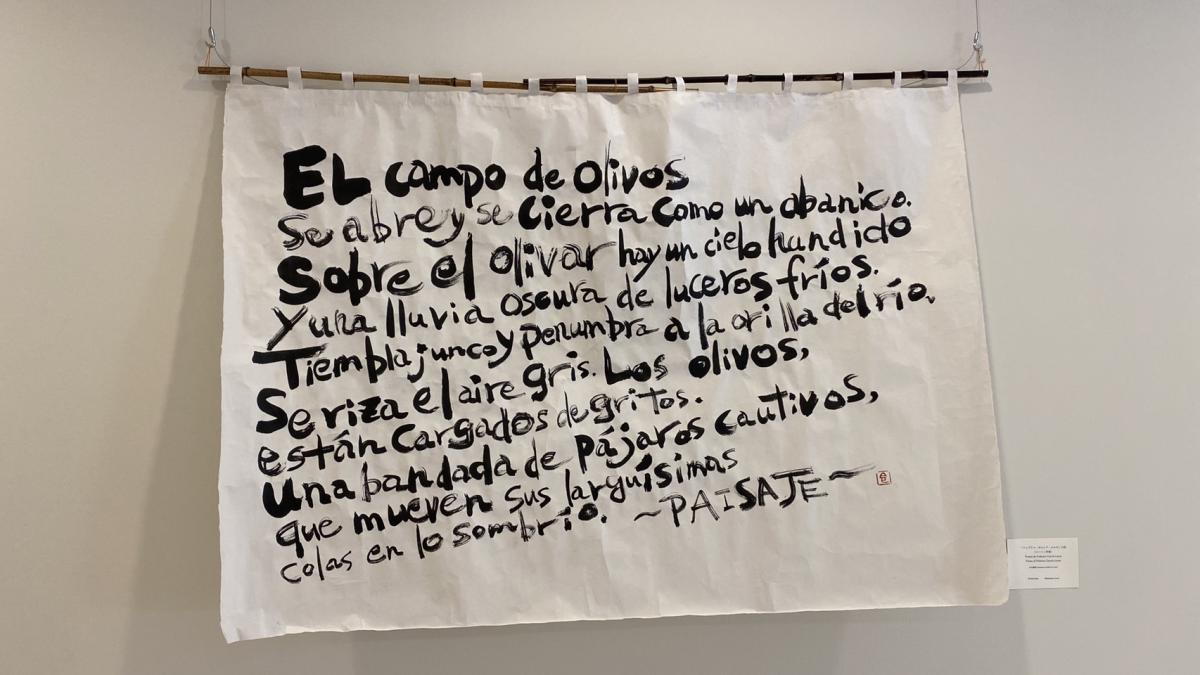 EL campo de olivos
se abre y se cierra como un abanico.
Sobre el olivar hay un cielo hundido
y una lluvia oscura de luceros fríos.
Tiembla junco y penumbra a la orilla del río.
Se riza el aire gris. Los olivos,
están cargados de gritos.
Una bandada de pájaros cautivos,
que mueven sus larguísimas
colas en lo sombrío. ~PAISAJE~